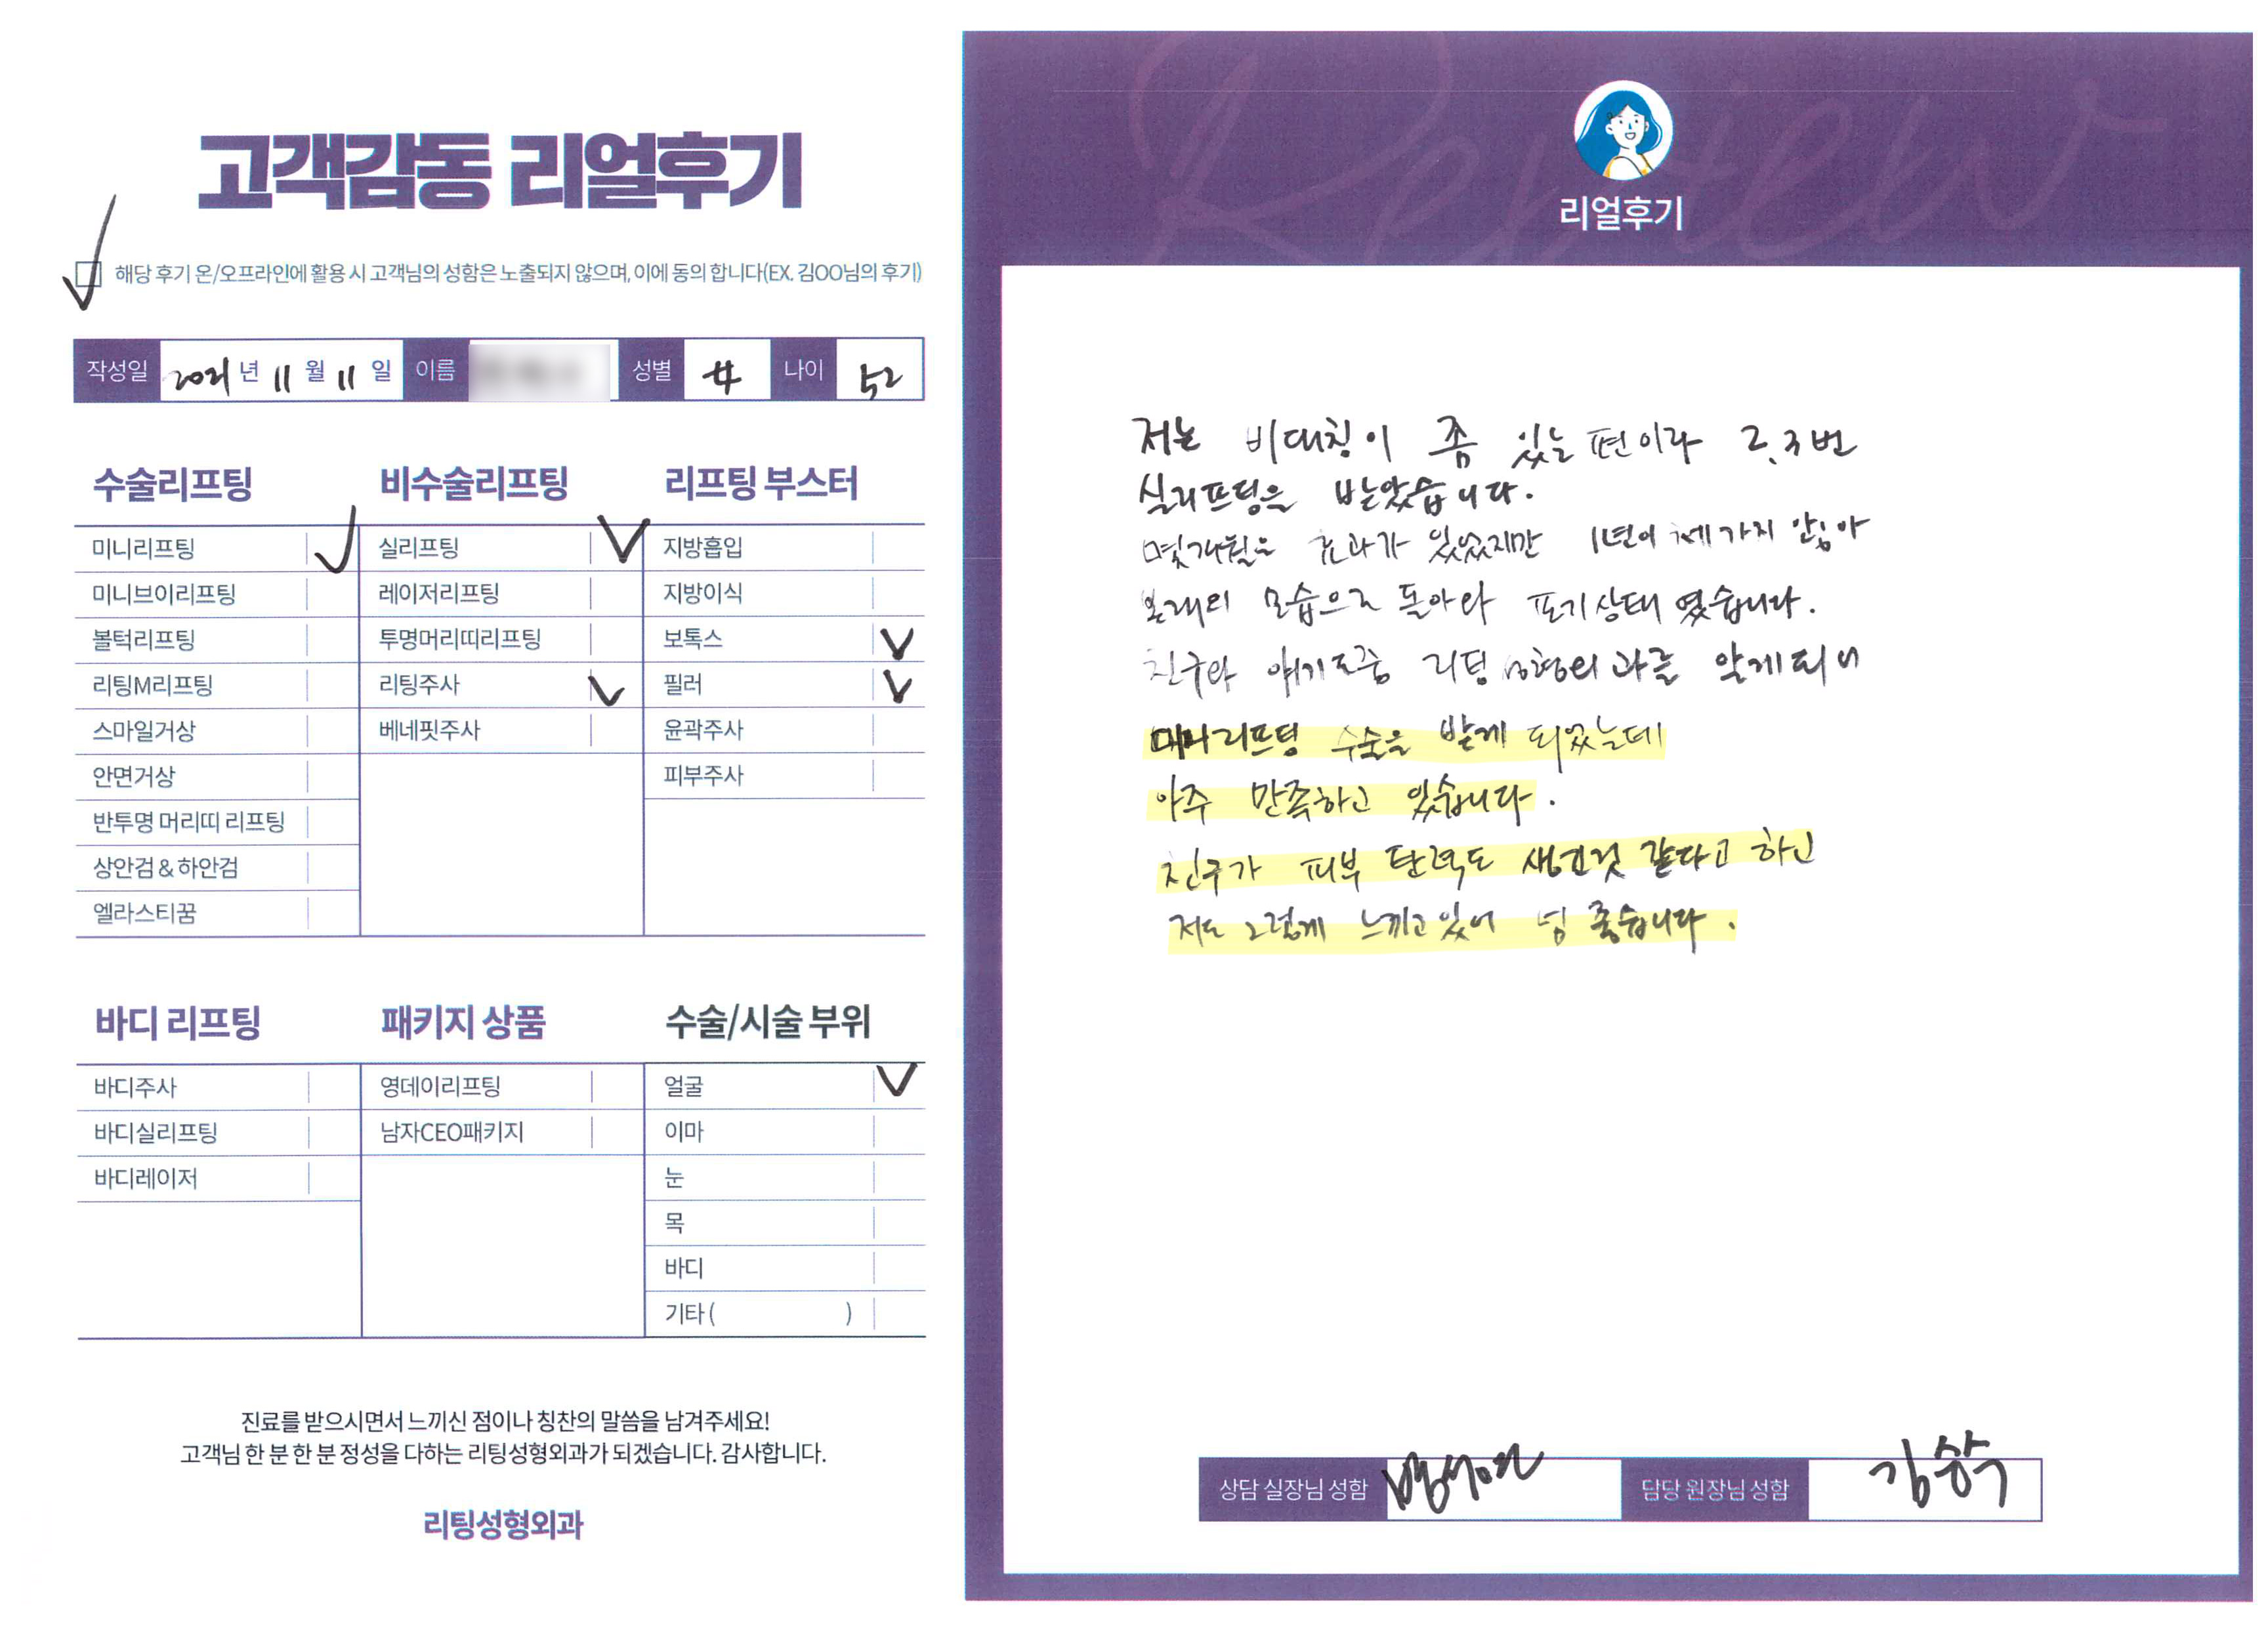 고객감동 리얼후기
해당 후기 온/오프라인에 활용 시 고객님의 성함은 노출되지 않으며, 이에 동의 합니다(EX. 김OO님의 후기)
작성일 2021 년 11 월 11 일 이름 성별 나이 52
수술리프팅 비수술리프팅 리프팅 부스터
미니리프팅 실리프팅 지방흡입
미니브이리프팅 레이저리프팅 지방이식
볼턱리프팅 투명머리띠리프팅 보톡스
리팅M리프팅 리팅주사 필러
스마일거상 베네핏주사 윤곽주사
안면거상 피부주사
반투명 머리띠 리프팅
상안검 & 하안검
엘라스티꿈
바디 리프팅 패키지 상품 수술/시술 부위
바디주사 영데이리프팅 얼굴
바디실리프팅 남자CEO패키지 이마
바디레이저 눈
목
바디
기타 ( )
진료를 받으시면서 느끼신 점이나 칭찬의 말씀을 남겨주세요!
고객님 한 분 한 분 정성을 다하는 리팅성형외과가 되겠습니다. 감사합니다.
리팅성형외과
Review
리얼후기
저는 비대칭이 좀 있는 편이라 2,3번
실리프팅을 받았습니다.
몇개월은 효과가 있었지만 1년이 채 가지 않아
본래의 모습으로 돌아와 포기상태 였습니다.
친구와 얘기도중 리팅성형외과를 알게되어
미니리프팅 수술을 받게 되었는데
아주 만족하고 있습니다.
친구가 피부 탄력도 생긴것 같다고 하고
저도 그렇게 느끼고 있어 넘 좋습니다.
상담 실장님 성함 담당 원장님 성함